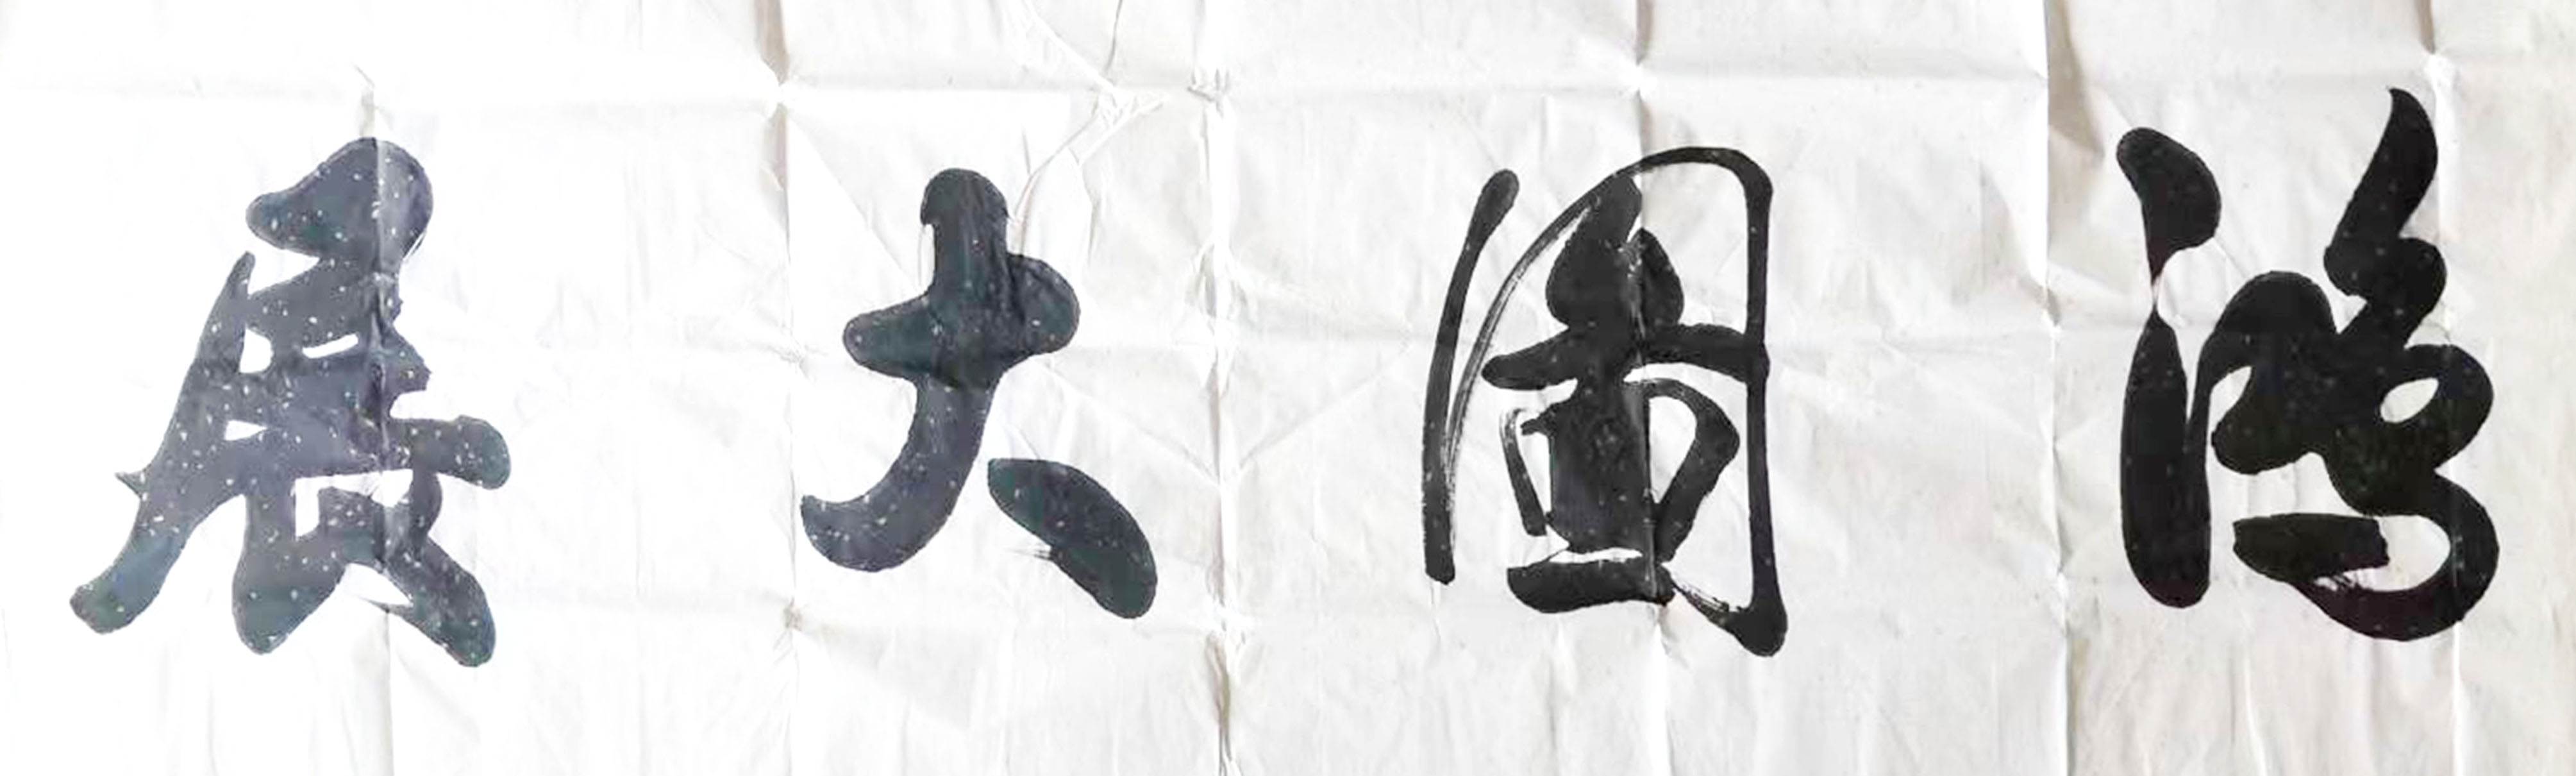 鴻圖大展